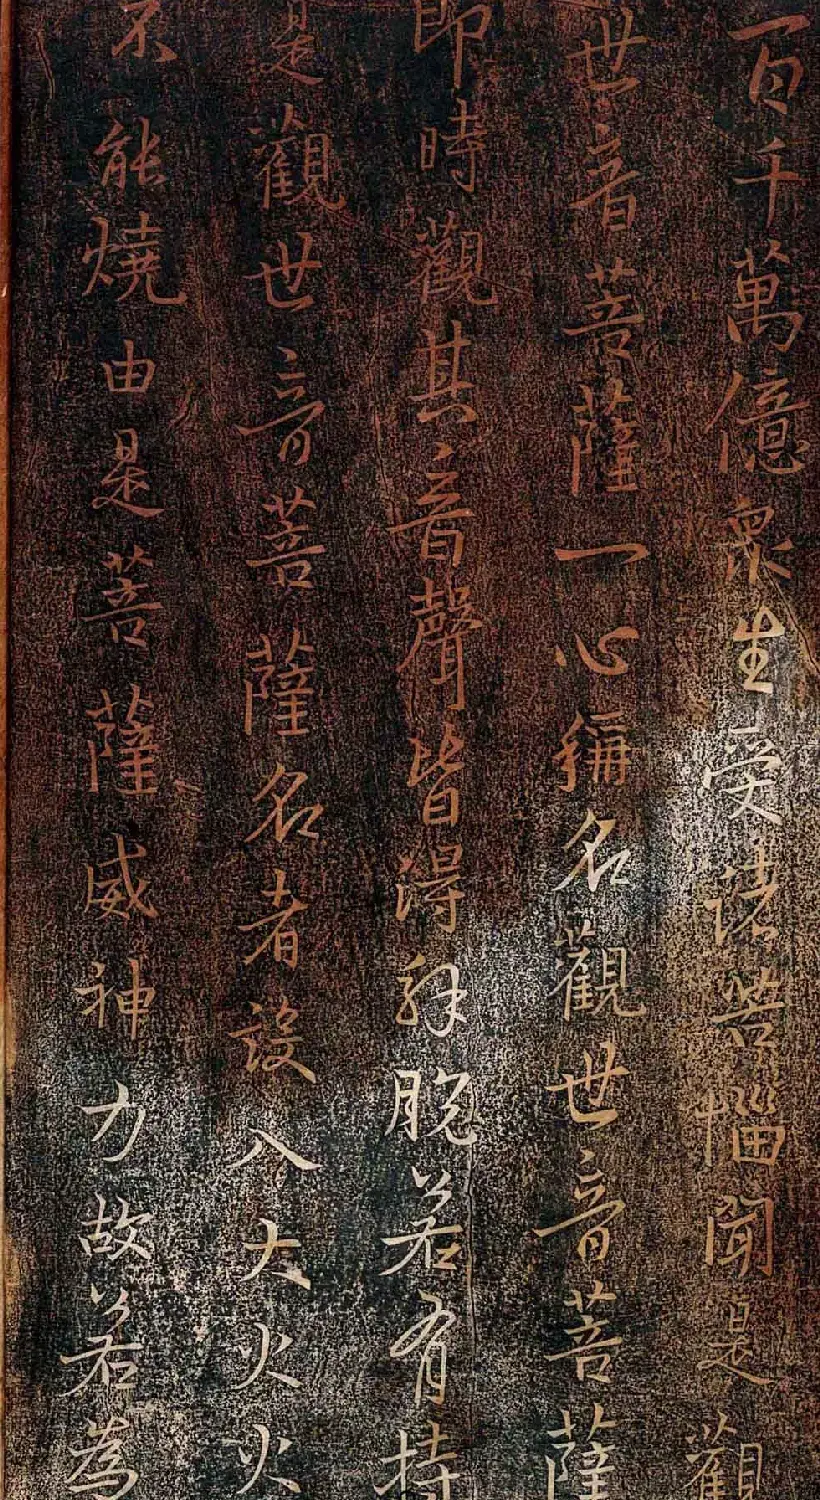 百千萬億衆生受諸苦惱聞是觀
世音菩薩一心稱名觀世音菩薩
即時觀其音聲皆得解脫若有持
是觀世音菩薩名者設入大火火
不能燒由是菩薩威神力故若為